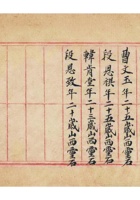 曹文玉年二十五歲山西靈石
段思祺年二十五歲山西靈石
韓肯堂年二十三歲山西靈石
段思敬年二十歲山西靈石